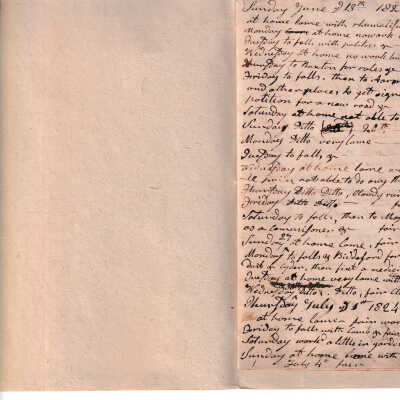 Sunday June 13th 182
at home lame with rhumati
Monday at home no work
Tuesday to falls with
Wednesday at home no work
Thursday to
Friday to falls, then to
and other places to get signe
petition for a new road &
Saturday at home not able to
Sunday Ditto 20th
Monday Ditto very lame
Tuesday to falls, &
Wednesday at home lame
not able to do any th
Thursday Ditto Ditto, cloudy
Friday Ditto Ditto
Saturday to falls, then to
as a commissioner & fair
Sunday 27 at home lame, fair
Monday to falls & Biddeford for
Tuesday at home very lame with
Wednesday Ditto, Ditto, fair
Thursday July 1st 1824
at home fair
Friday to falls with lamb & fair
Saturday work'd a little in garde
Sunday at home lame with
July 4th fair